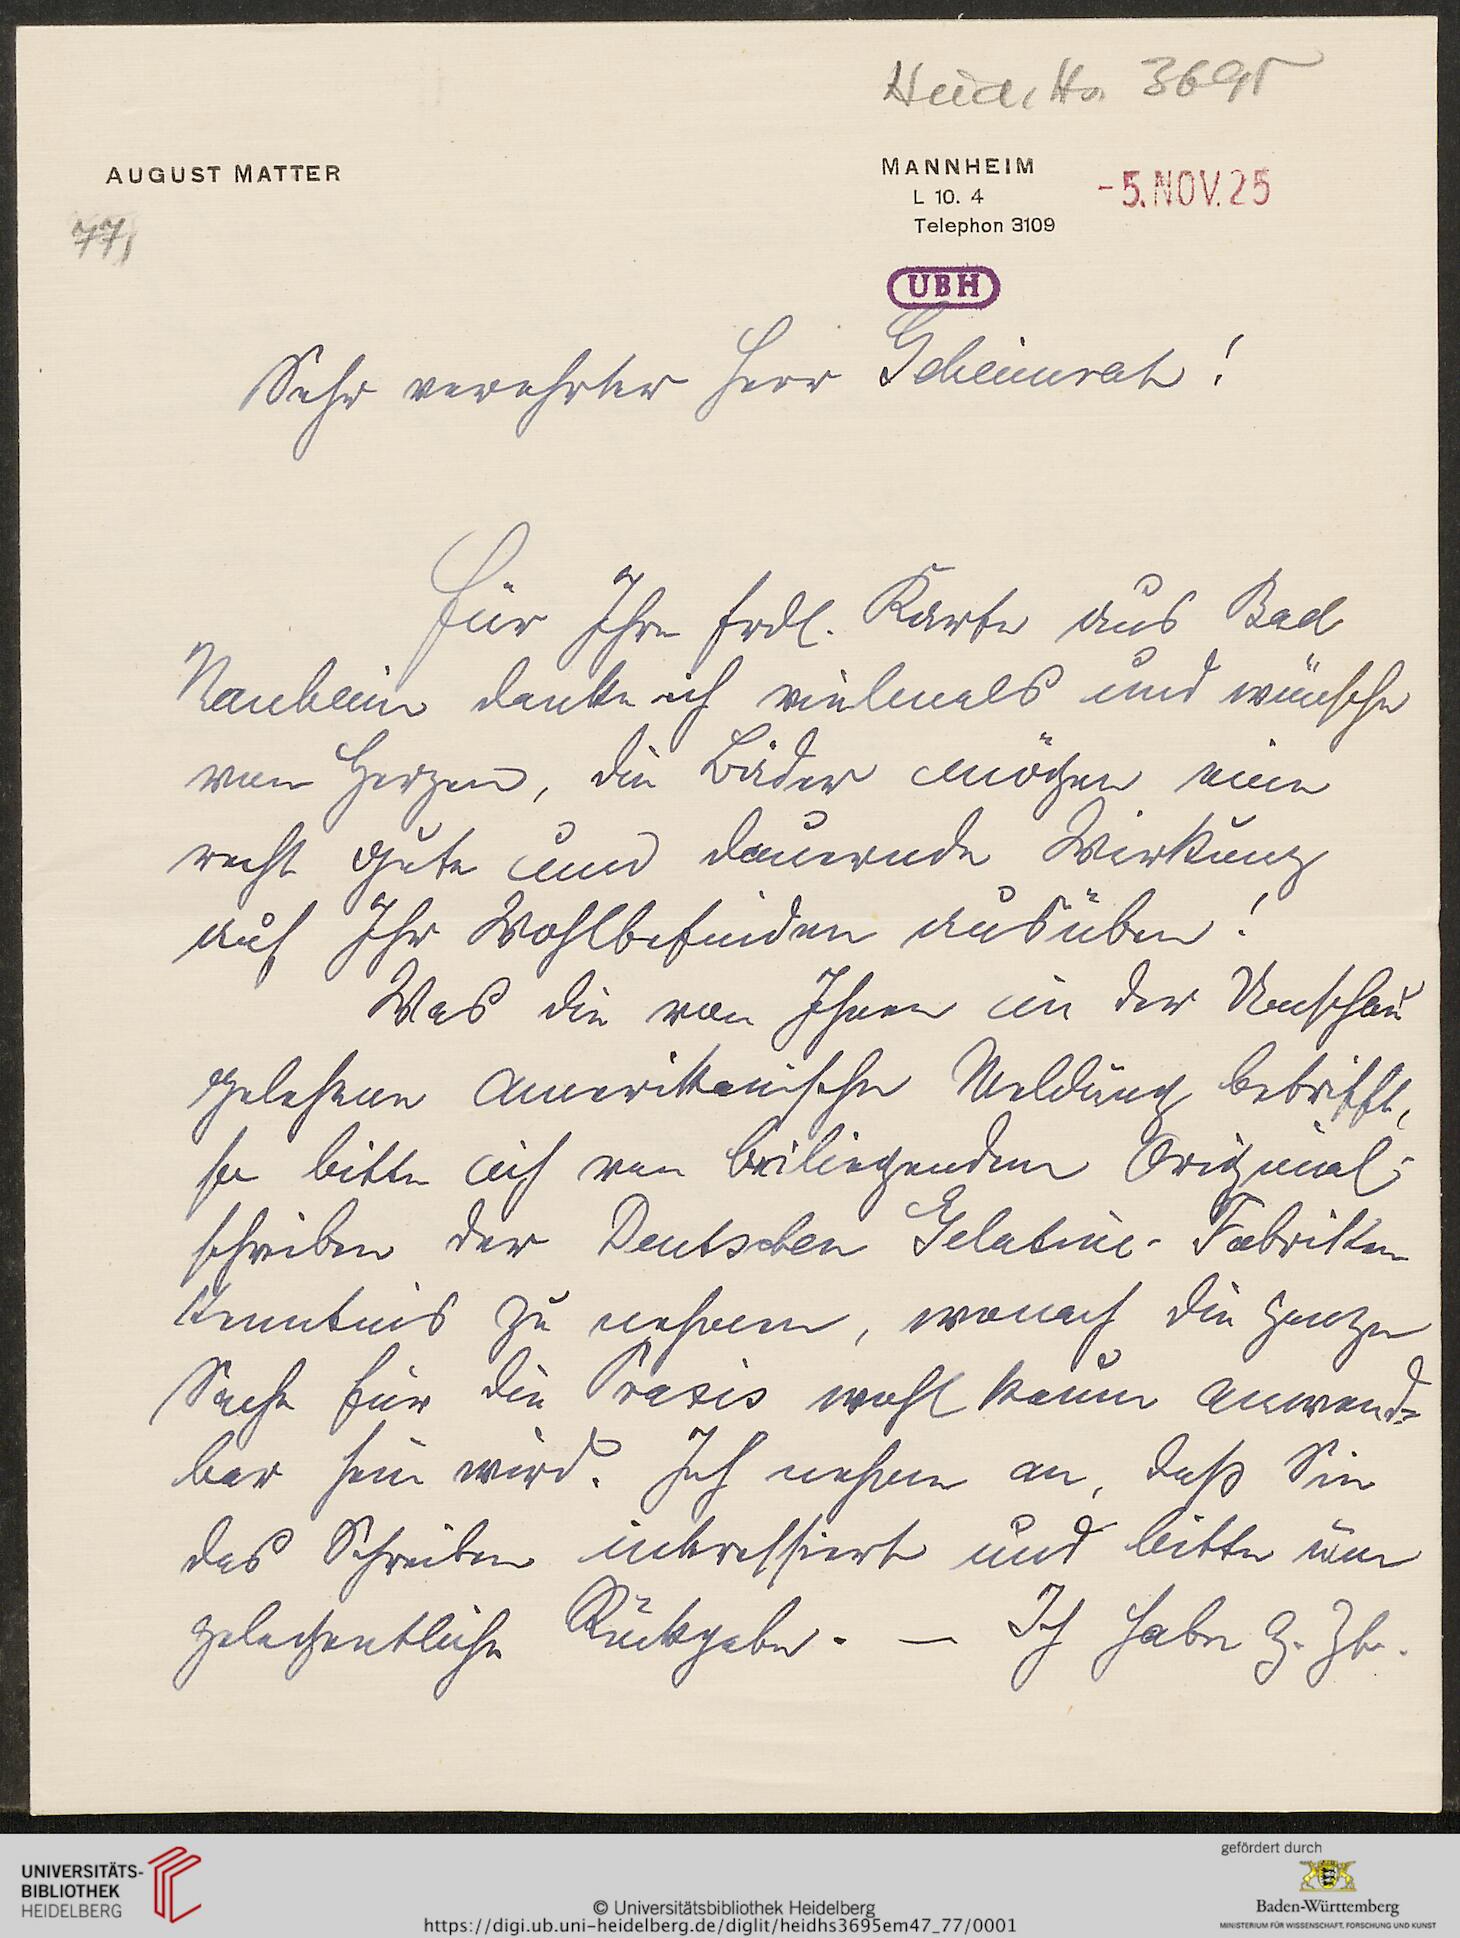 Heid. Hs. 3695
AUGUST MATTER
MANNHEIM
L 10. 4
Telephon 3109
-5. NOV. 25
77,
UBH
Sehr verehrter Herr Geheimrat!
Für Ihre frdl. Karte aus Bad
Nauheim danke ich vielmals und wünsche
von Herzen, die Bäder mögen eine
recht gute und dauernde Wirkung
auf Ihr Wohlbefinden ausüben!
Was die von Ihnen in der Umschau
gelesene amerikanische Meldung betrifft,
so bitte ich von beiliegendem Original-
schreiben der Deutschen Gelatine-Fabriken
Kenntnis zu nehmen, wonach die ganze
Sache für die Praxis wohl kaum anwend-
bar sein wird. Ich nehme an, daß Sie
das Schreiben interessiert und bitte um
gelegentliche Rückgabe. — Ich habe z. Zt.
UNIVERSITÄTS-
BIBLIOTHEK
HEIDELBERG
© Universitätsbibliothek Heidelberg
https://digi.ub.uni-heidelberg.de/diglit/heidhs3695em47_77/0001
gefördert durch
Baden-Württemberg
MINISTERIUM FÜR WISSENSCHAFT, FORSCHUNG UND KUNST